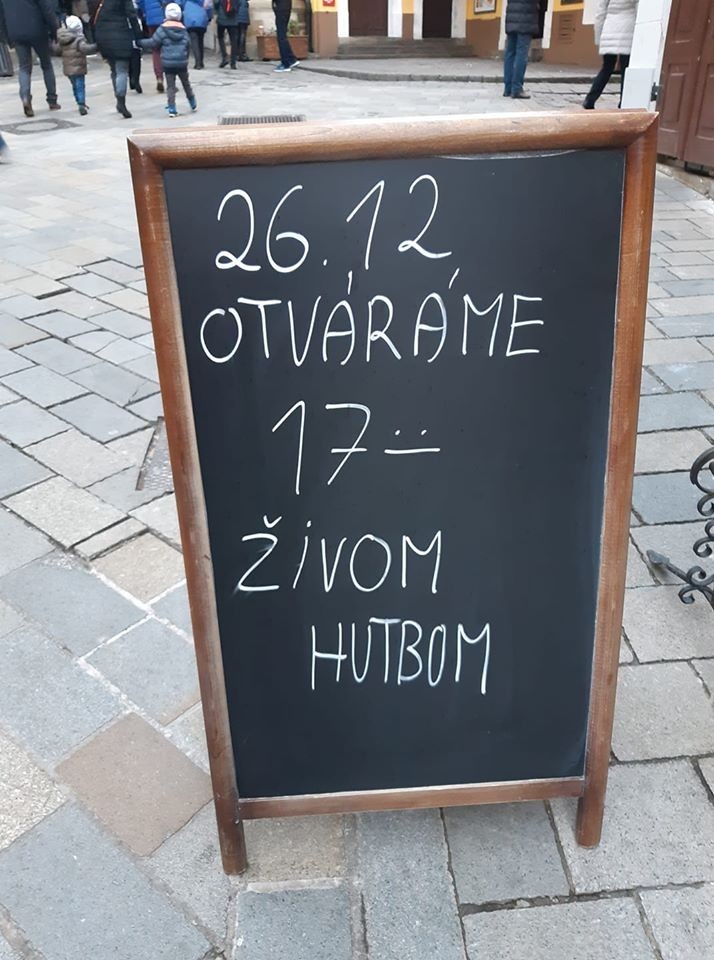 26.12
OTVÁRÁME
17--
ŽIVOM
HUTBOM